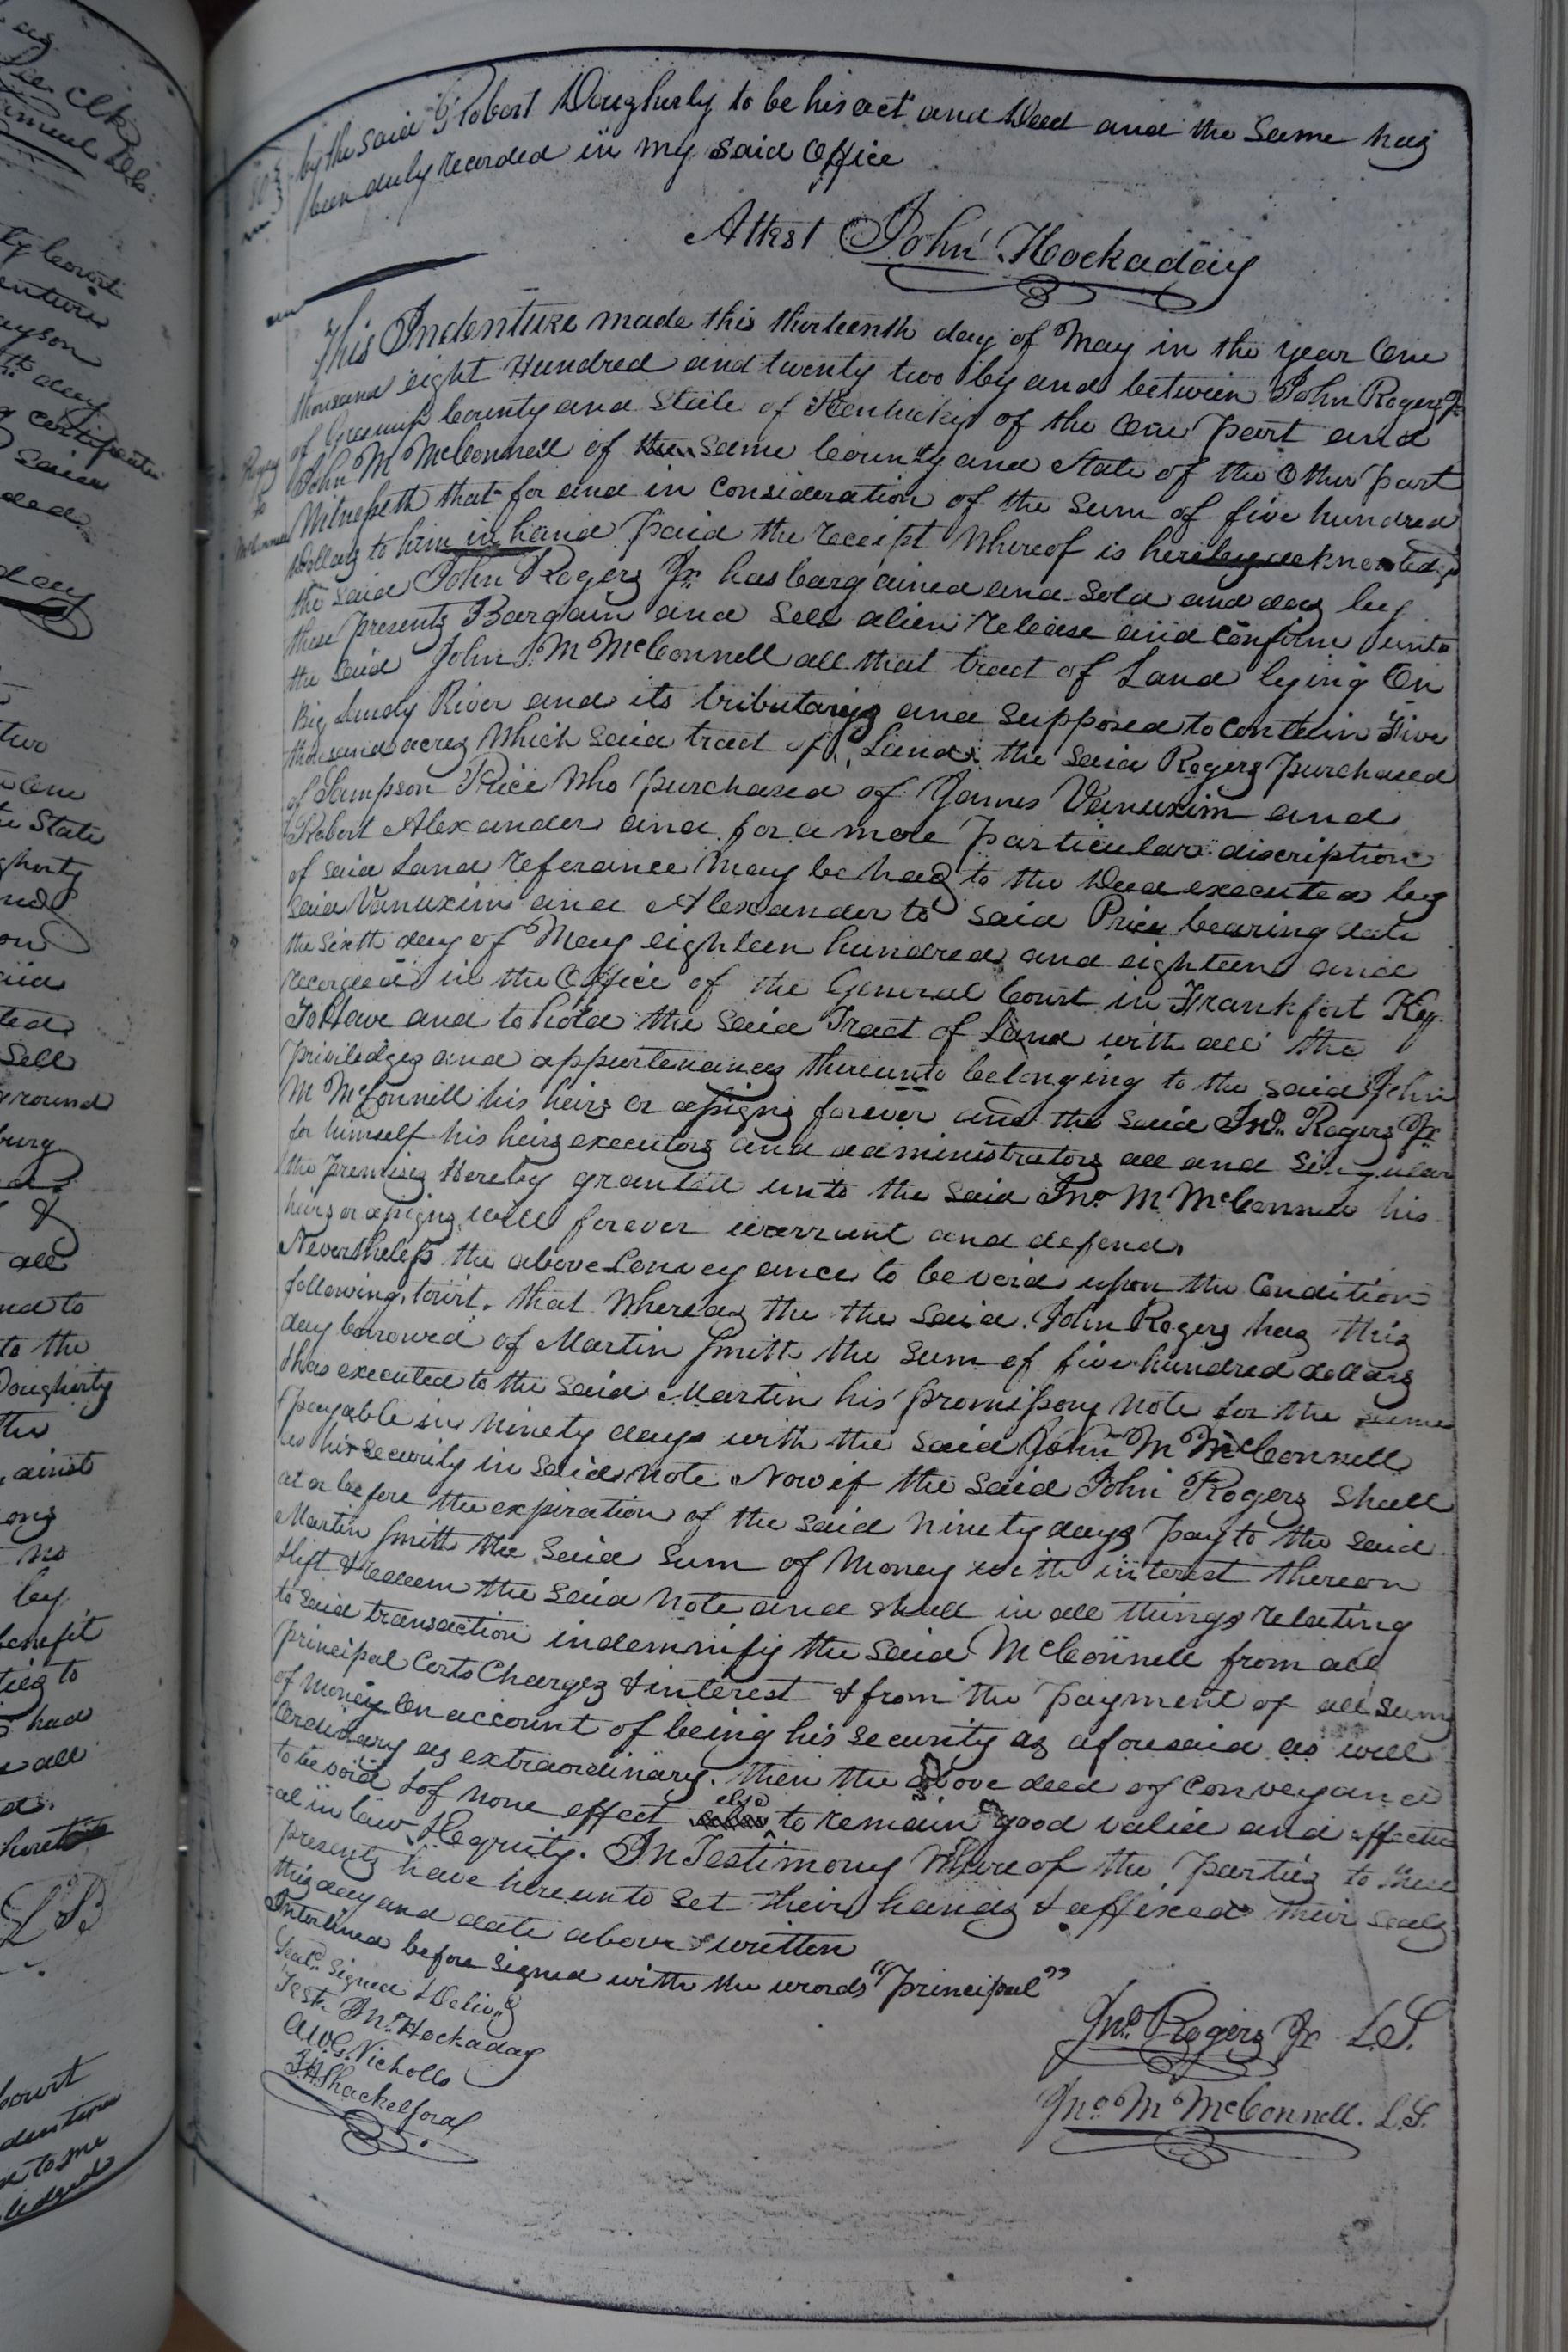 by the said Robert Dougherty to be his act and Deed and the Same has
been duly recorded in my said Office
Attest John Hockaday
This Indenture made this thirteenth day of May in the year One
thousand eight Hundred and twenty two by and between John Rogers Jr
of Greenup County and State of Kentucky of the One part and
John M McConnell of the same County and State of the Other part
Witnesseth that for and in consideration of the sum of five hundred
Dollars to him in hand paid the receipt whereof is hereby acknowledgd
the said John Rogers Jr has bargained and sold and does by
these presents Bargain and Sell alien release and confirm unto
the said John M McConnell all that tract of Land lying On
Big Sandy River and its tributaries and supposed to contain Five
thousand acres which said tract of Land the said Rogers purchased
of Sampson Price who purchased of James Vanuxim and
Robert Alexander and for a more particular discription
of said Land referance may be had to the Deed executed by
said Vanuxim and Alexander to said Price bearing date
the sixth day of May eighteen hundred and eighteen and
recorded in the Office of the General Court in Frankfort Ky.
To Have and to hold the said Tract of Land with all the
priviledges and appurtenances thereunto belonging to the said John
M McConnell his heirs or assigns forever and the said Jno. Rogers Jr
for himself his heirs executors and administrators all and Singular
the premises Hereby granted unto the said Jno M McConnell his
heirs or assigns will forever warrant and defend.
Nevertheless the above Conveyance to be void upon the Condition
following, towit, that Whereas the the said John Rogers has this
day borrowed of Martin Smith the sum of five hundred dollars
& has executed to the said Martin his promissory note for the same
payable in ninety days with the said John M McConnell
as his security in said note Now if the said John Rogers Shall
at or before the expiration of the said ninety days pay to the said
Martin Smith the said sum of money with interest thereon
& lift & redeem the said note and shall in all things relating
to said transaction indemnify the said McConnell from all
principal Costs Charges & interest & from the payment of all sums
of money On account of being his security as aforesaid as well
Ordinary as extraordinary. then the above deed of conveyance
to be void & of none effect else to remain good valid and effectu
-al in law & Equity. In Testimony Whereof the parties to these
presents have hereunto set their hands & affixed their seals
this day and date above written
Interlined before signed with the words "principal"
Seald. Signed & Delivd
Teste Jno. Hockaday
A.W.G. Nicholls
J.H. Shackelford
Jno. Rogers Jr L.S.
Jno. M McConnell. L.S.
Rogers
to
McConnell